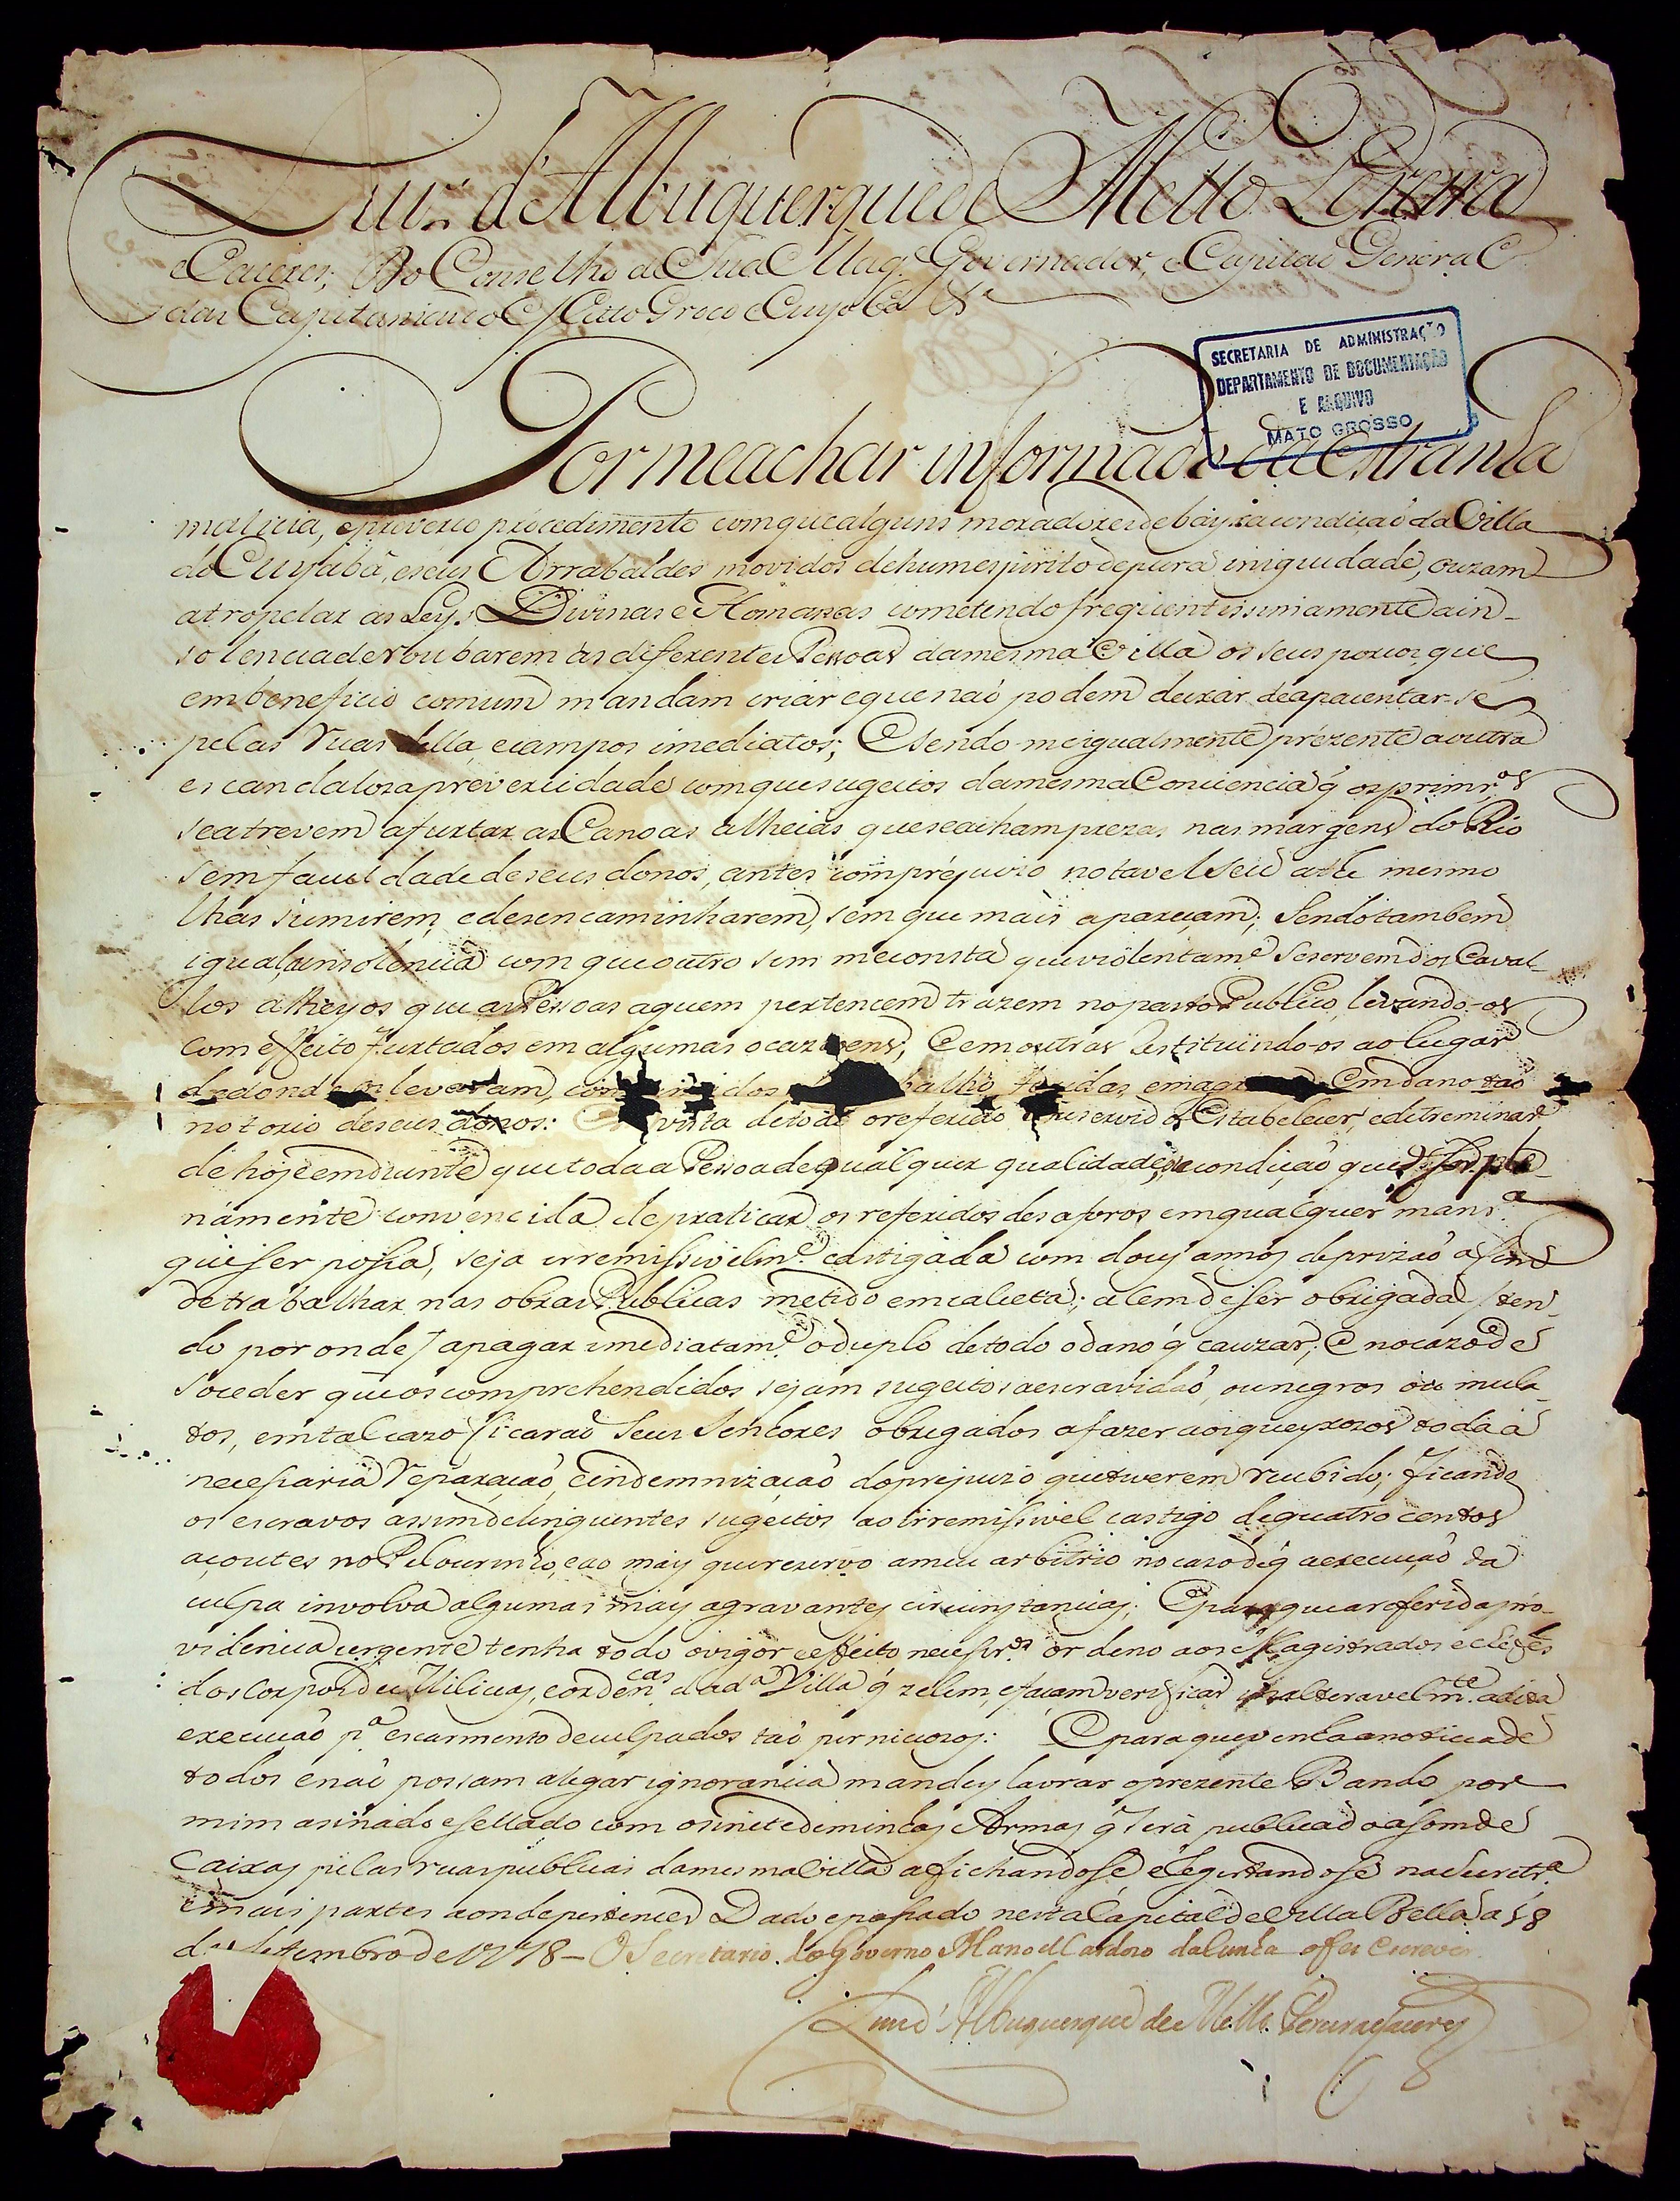 Luiz d'Albuquerque de Mello Pereira
e Caceres, Do Conselho de Sua Mag.e Governador, e Capitaõ General
das Capitanias do Matto Groço e Cuyabá &.a
SECRETARIA DE ADMINISTRAÇÃO
DEPARTAMENTO DE DOCUMENTAÇÃO
E ARQUIVO
MATO GROSSO
Por me achar informado da estranha
malicia, e preverço procedimento com que alguns moradores de bayxa condiçaõ da Villa
do Cuyabá, e seus Arrabaldes movidos de hum espirito de pura iniguidade, ouzam
atropelar as Leys Divinas e Homanas cometendo freqüentissimamente a in-
solencia de roubarem ás diferentes Pessoas da mesma Villa os seus porcos que
em beneficio comum mandam criar e que naõ podem deixar de apacentar-se
pelas Ruas della, e campos imediatos; E sendo-me igualmente prezente a outra
escandaloza preverсidade com que sugeitos da mesma Conciencia q̃ os primr.os
se atrevem a furtar as Canoas alheias que se acham prezas nas margens do Rio
sem faculdade de seus donos, antes com préjuizo notavel seu athé mesmo
lhas sumirem, e desencaminharem, sem que mais apareçam; Sendo tambem
igual a insolencia com que outro sim me consta que violentam.e se servem dos Caval-
los alheyos que as Pessoas a quem pertencem trazem no pasto Publico, levando-os
com effeito furtados em algumas ocazioens, E em outras Restituindo-os ao lugar
de donde os levaram, dos feridas, em dano taõ
notorio de seus donos: vista de todo o referido servido Estabelecer, e detreminar,
de hoje em diante que toda a Pessoa de qualquer qualidade, e condiçaõ que for ple-
namente convencida de praticar os referidos desaforos em qualquer manr.a
que ser possa, seja irremissivelm.e castigada com dous annos de prizaõ a fim
de trabalhar nas obras Publicas metido em calceta; alem de ser obrigada (ten-
do por onde) a pagar imediatam.e o duplo de todo o dano q̃ cauzar; E no cazo de
soceder que os comprehendidos sejam sugeitos a escravidaõ, ou negros ou mula-
tos, em tal cazo ficaraõ seus Senhores obrigados a fazer aos queyxozos toda a
necessaria reparaçaõ, e indemnizaçaõ do prejuizo que tiverem recibido; ficando
os escravos assim delinquentes sugeitos ao irremissivel castigo de quatro centos
açoutes no Pelourinho, e ao mays que rezervo a meu arbitrio no cazo de q̃ a execuçaõ da
culpa involva algumas mays agravantes circunstancias; E para que a referida pro-
videncia urgente tenha todo o vigor e effeito necessr.o ordeno aos Magistrados e Chefes
dos Corpos de Milicias, e ordencas da d.a Villa q̃ zelem, e façam verificar inalteravelm.te a dita
execuçaõ p.a escarmento de culpados taõ pernicozos: E para que venha a noticia de
todos e naõ possam alegar ignorancia mandey lavrar o prezente Bando por
mim asinado e sellado com o sinete de minhas Armas q̃ será publicado a som de
Caixas pelas ruas publicas da mesma Villa afichandose e Regirtandose na Secretr.a
e mais partes aonde pertencer Dado e passado nesta Capital de Villa Bella a 18
de Setembro de 1778 – O Secretario do Governo Manoel Cardozo da Cunha o fes escrever
Luis d'Albuquerque de Mello Pereira e Caceres